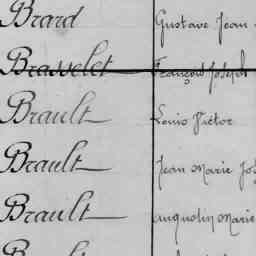 Brard Gustave Jean
Brasselet François Joseph
Brault Louis Victor
Brault Jean Marie
Brault Marie